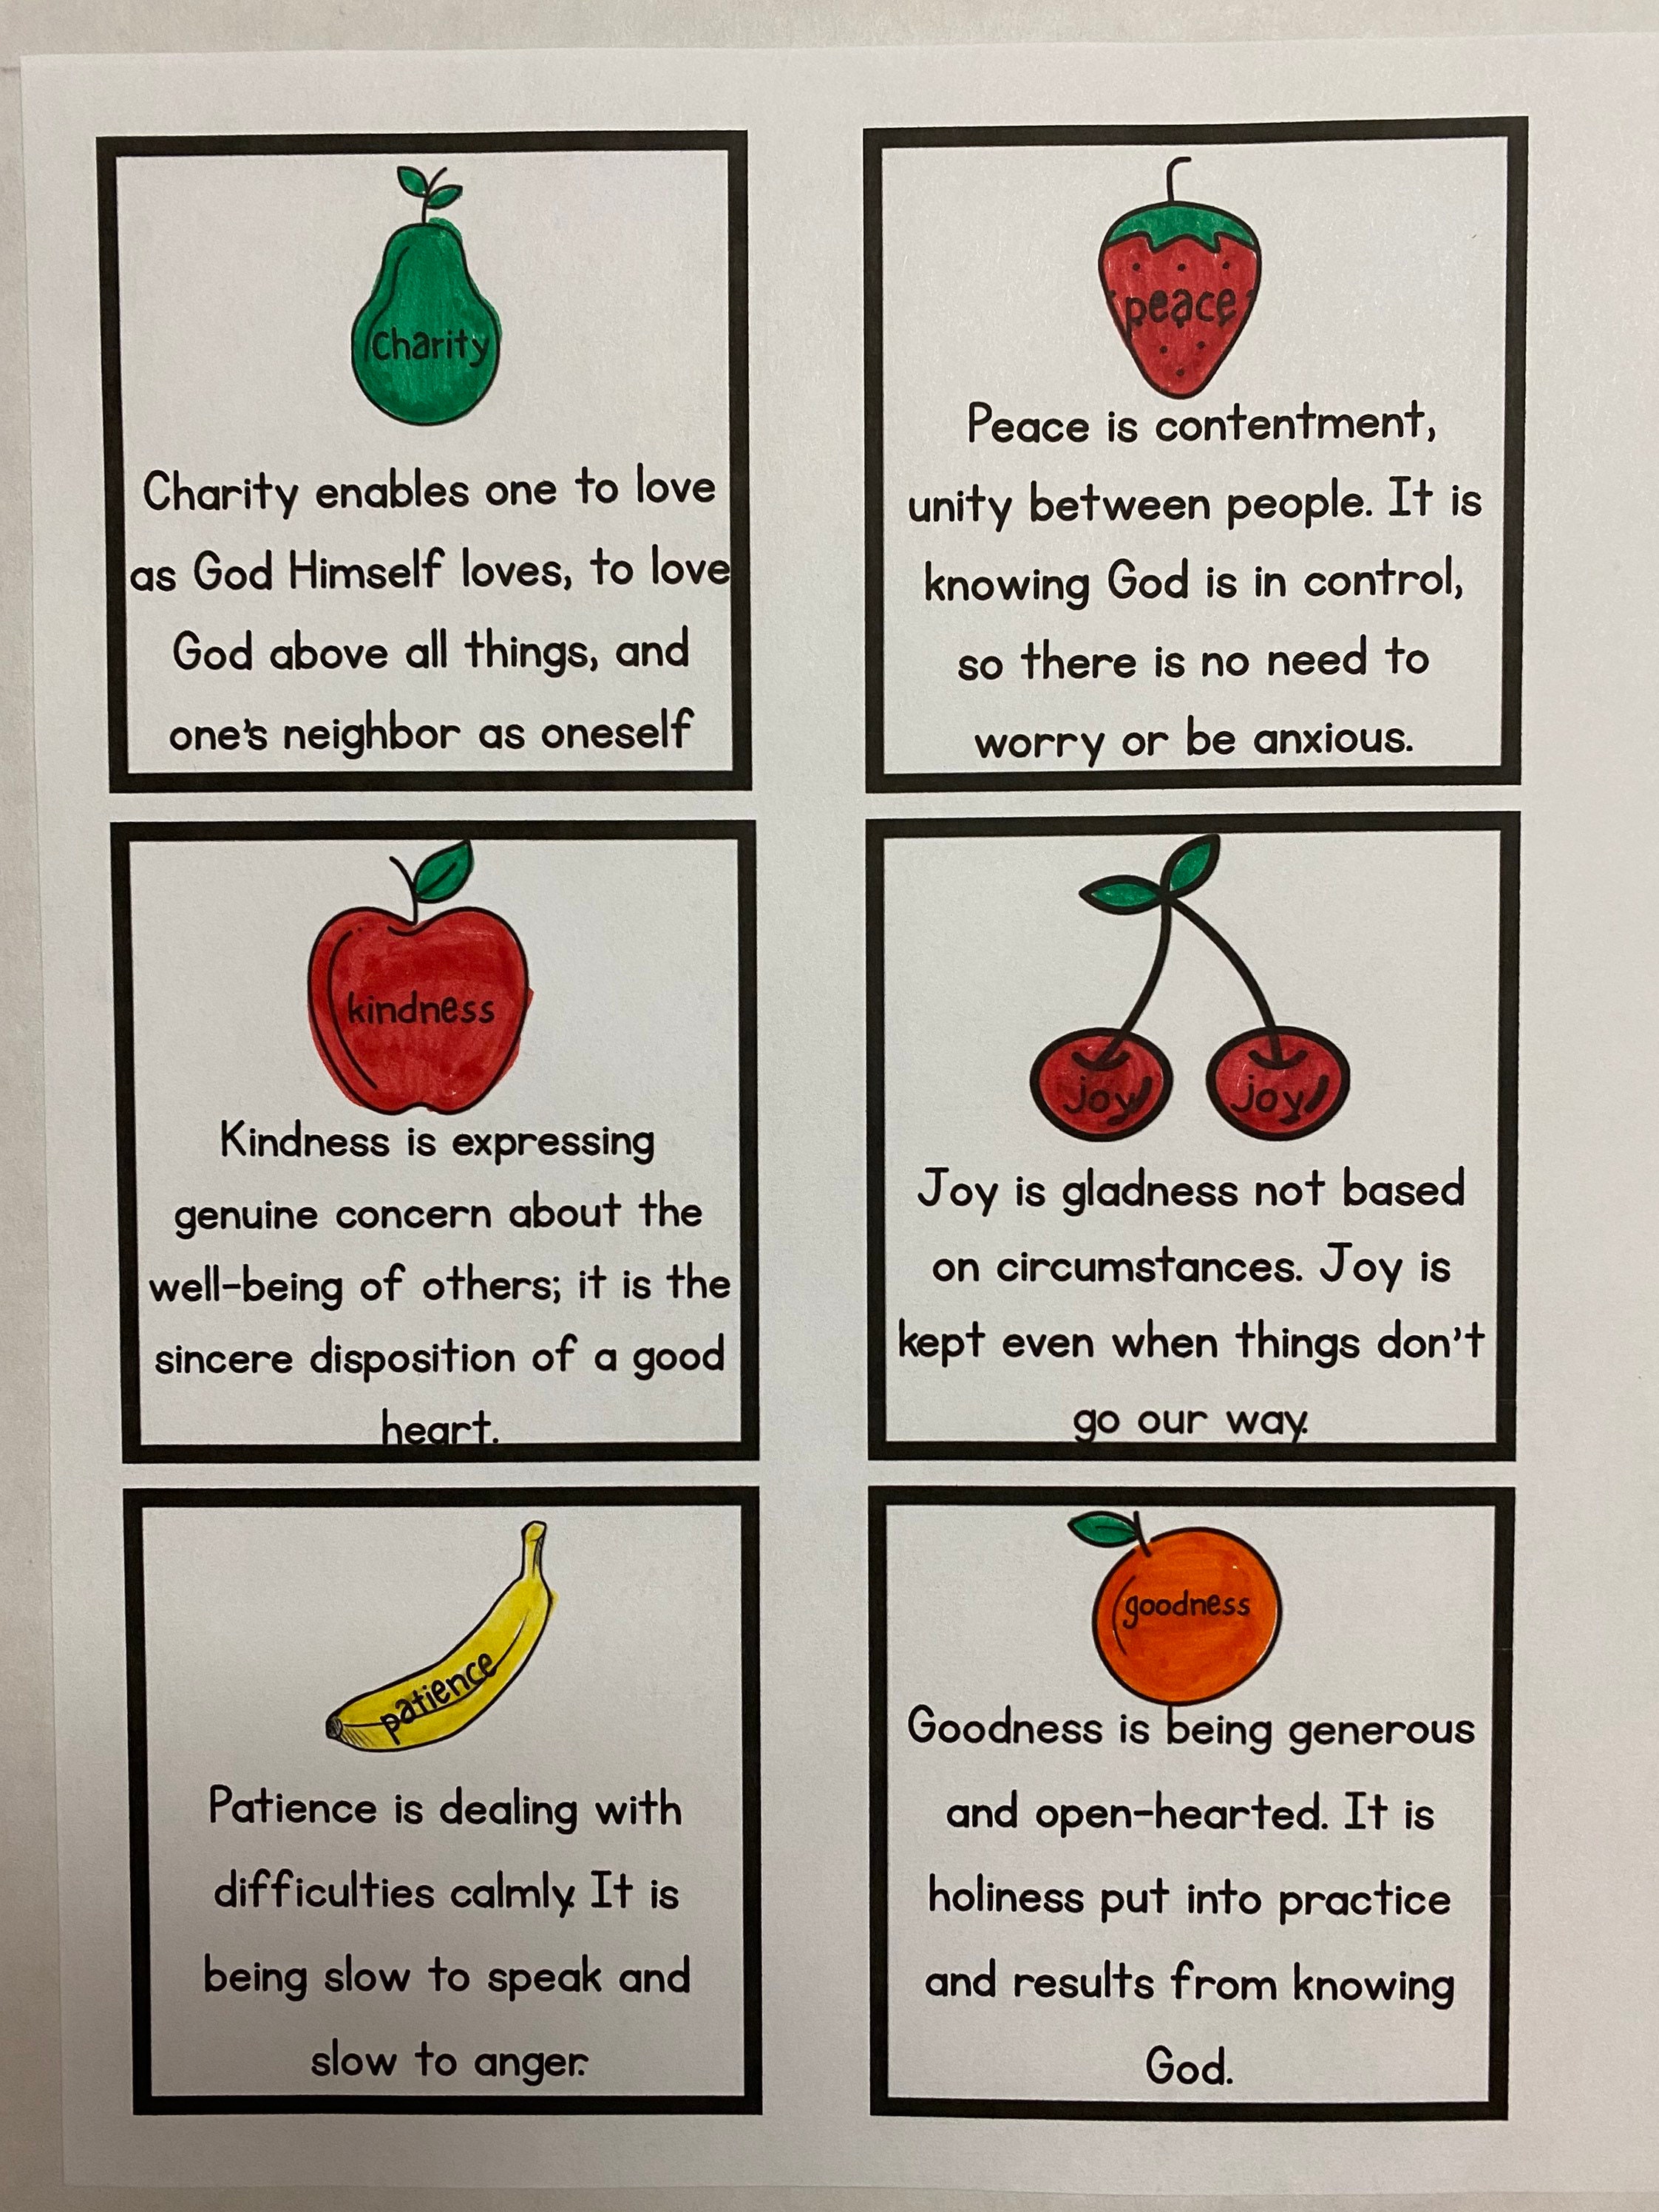 charity
Charity enables one to love
as God Himself loves, to love
God above all things, and
one's neighbor as oneself
peace
Peace is contentment,
unity between people. It is
knowing God is in control,
so there is no need to
worry or be anxious.
kindness
Kindness is expressing
genuine concern about the
well-being of others; it is the
sincere disposition of a good
heart.
joy joy
Joy is gladness not based
on circumstances. Joy is
kept even when things don't
go our way.
patience
Patience is dealing with
difficulties calmly. It is
being slow to speak and
slow to anger.
goodness
Goodness is being generous
and open-hearted. It is
holiness put into practice
and results from knowing
God.